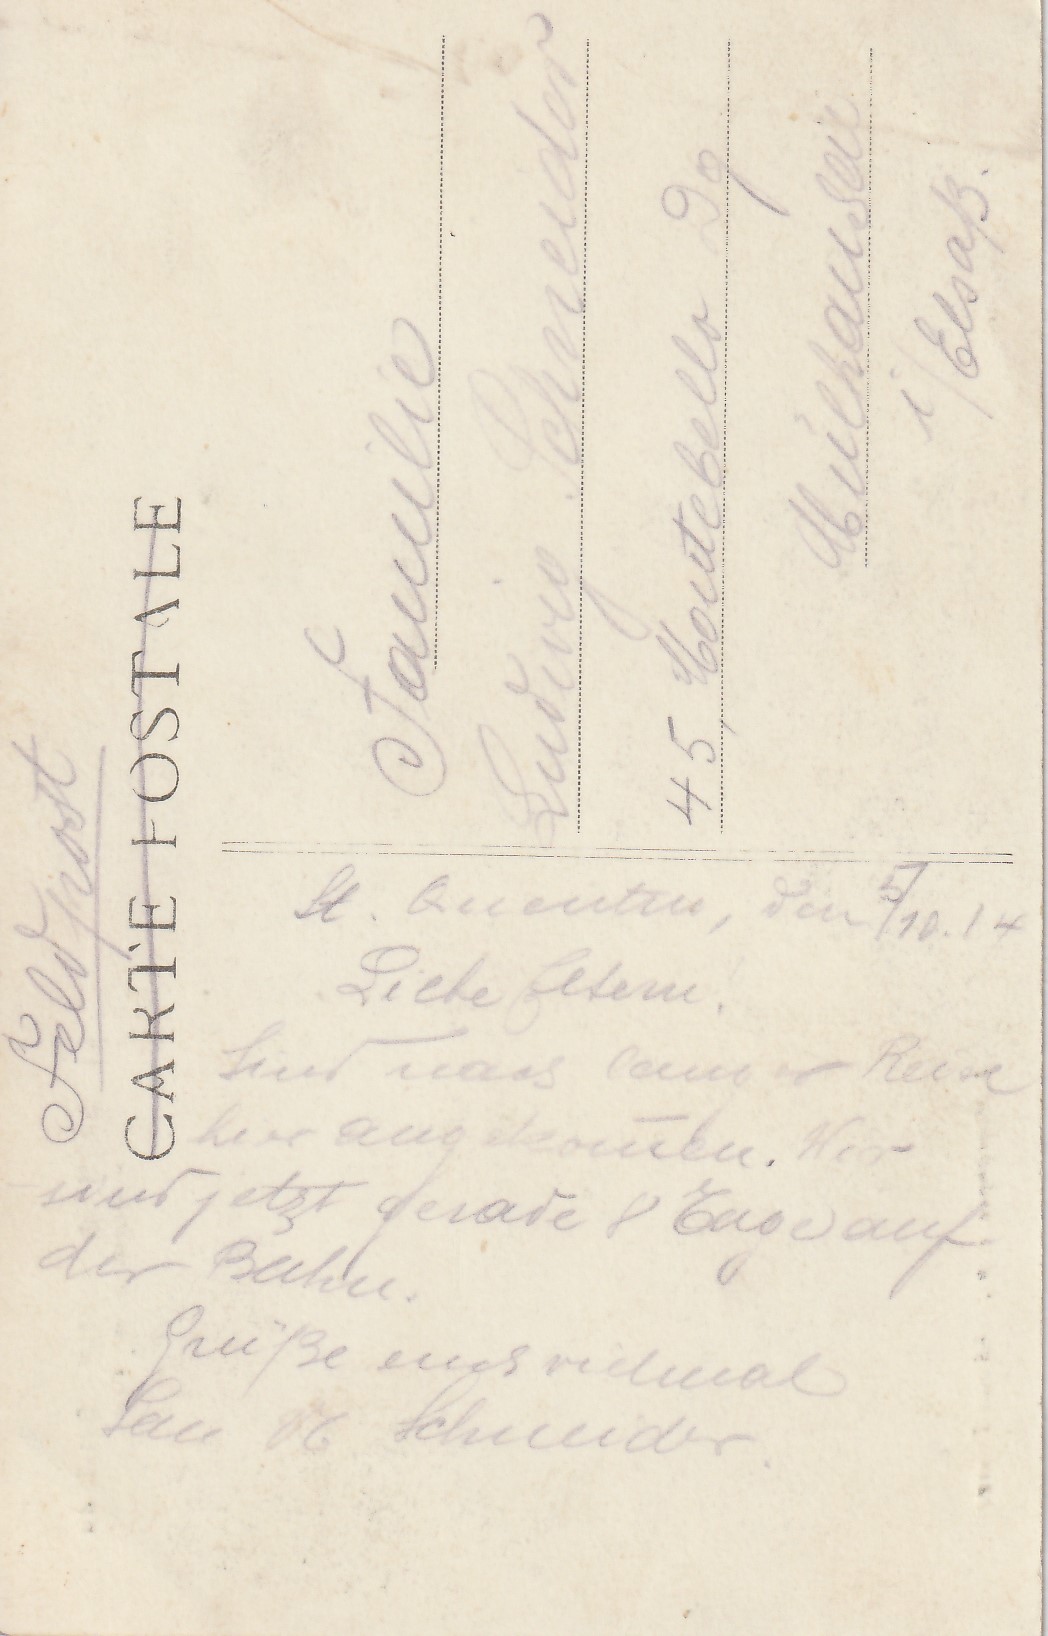 Feldpost
CARTE POSTALE
Familie
Ludwig Schneider
45, Montebello
Mülhausen
i/Elsaß.
St. Quentin, den 5/10.14
Liebe Eltern!
Sind nach langer Reise
hier angekommen. Wir
sind jetzt gerade 8 Tage auf
der Bahn.
Grüße euch vielmal
Schneider